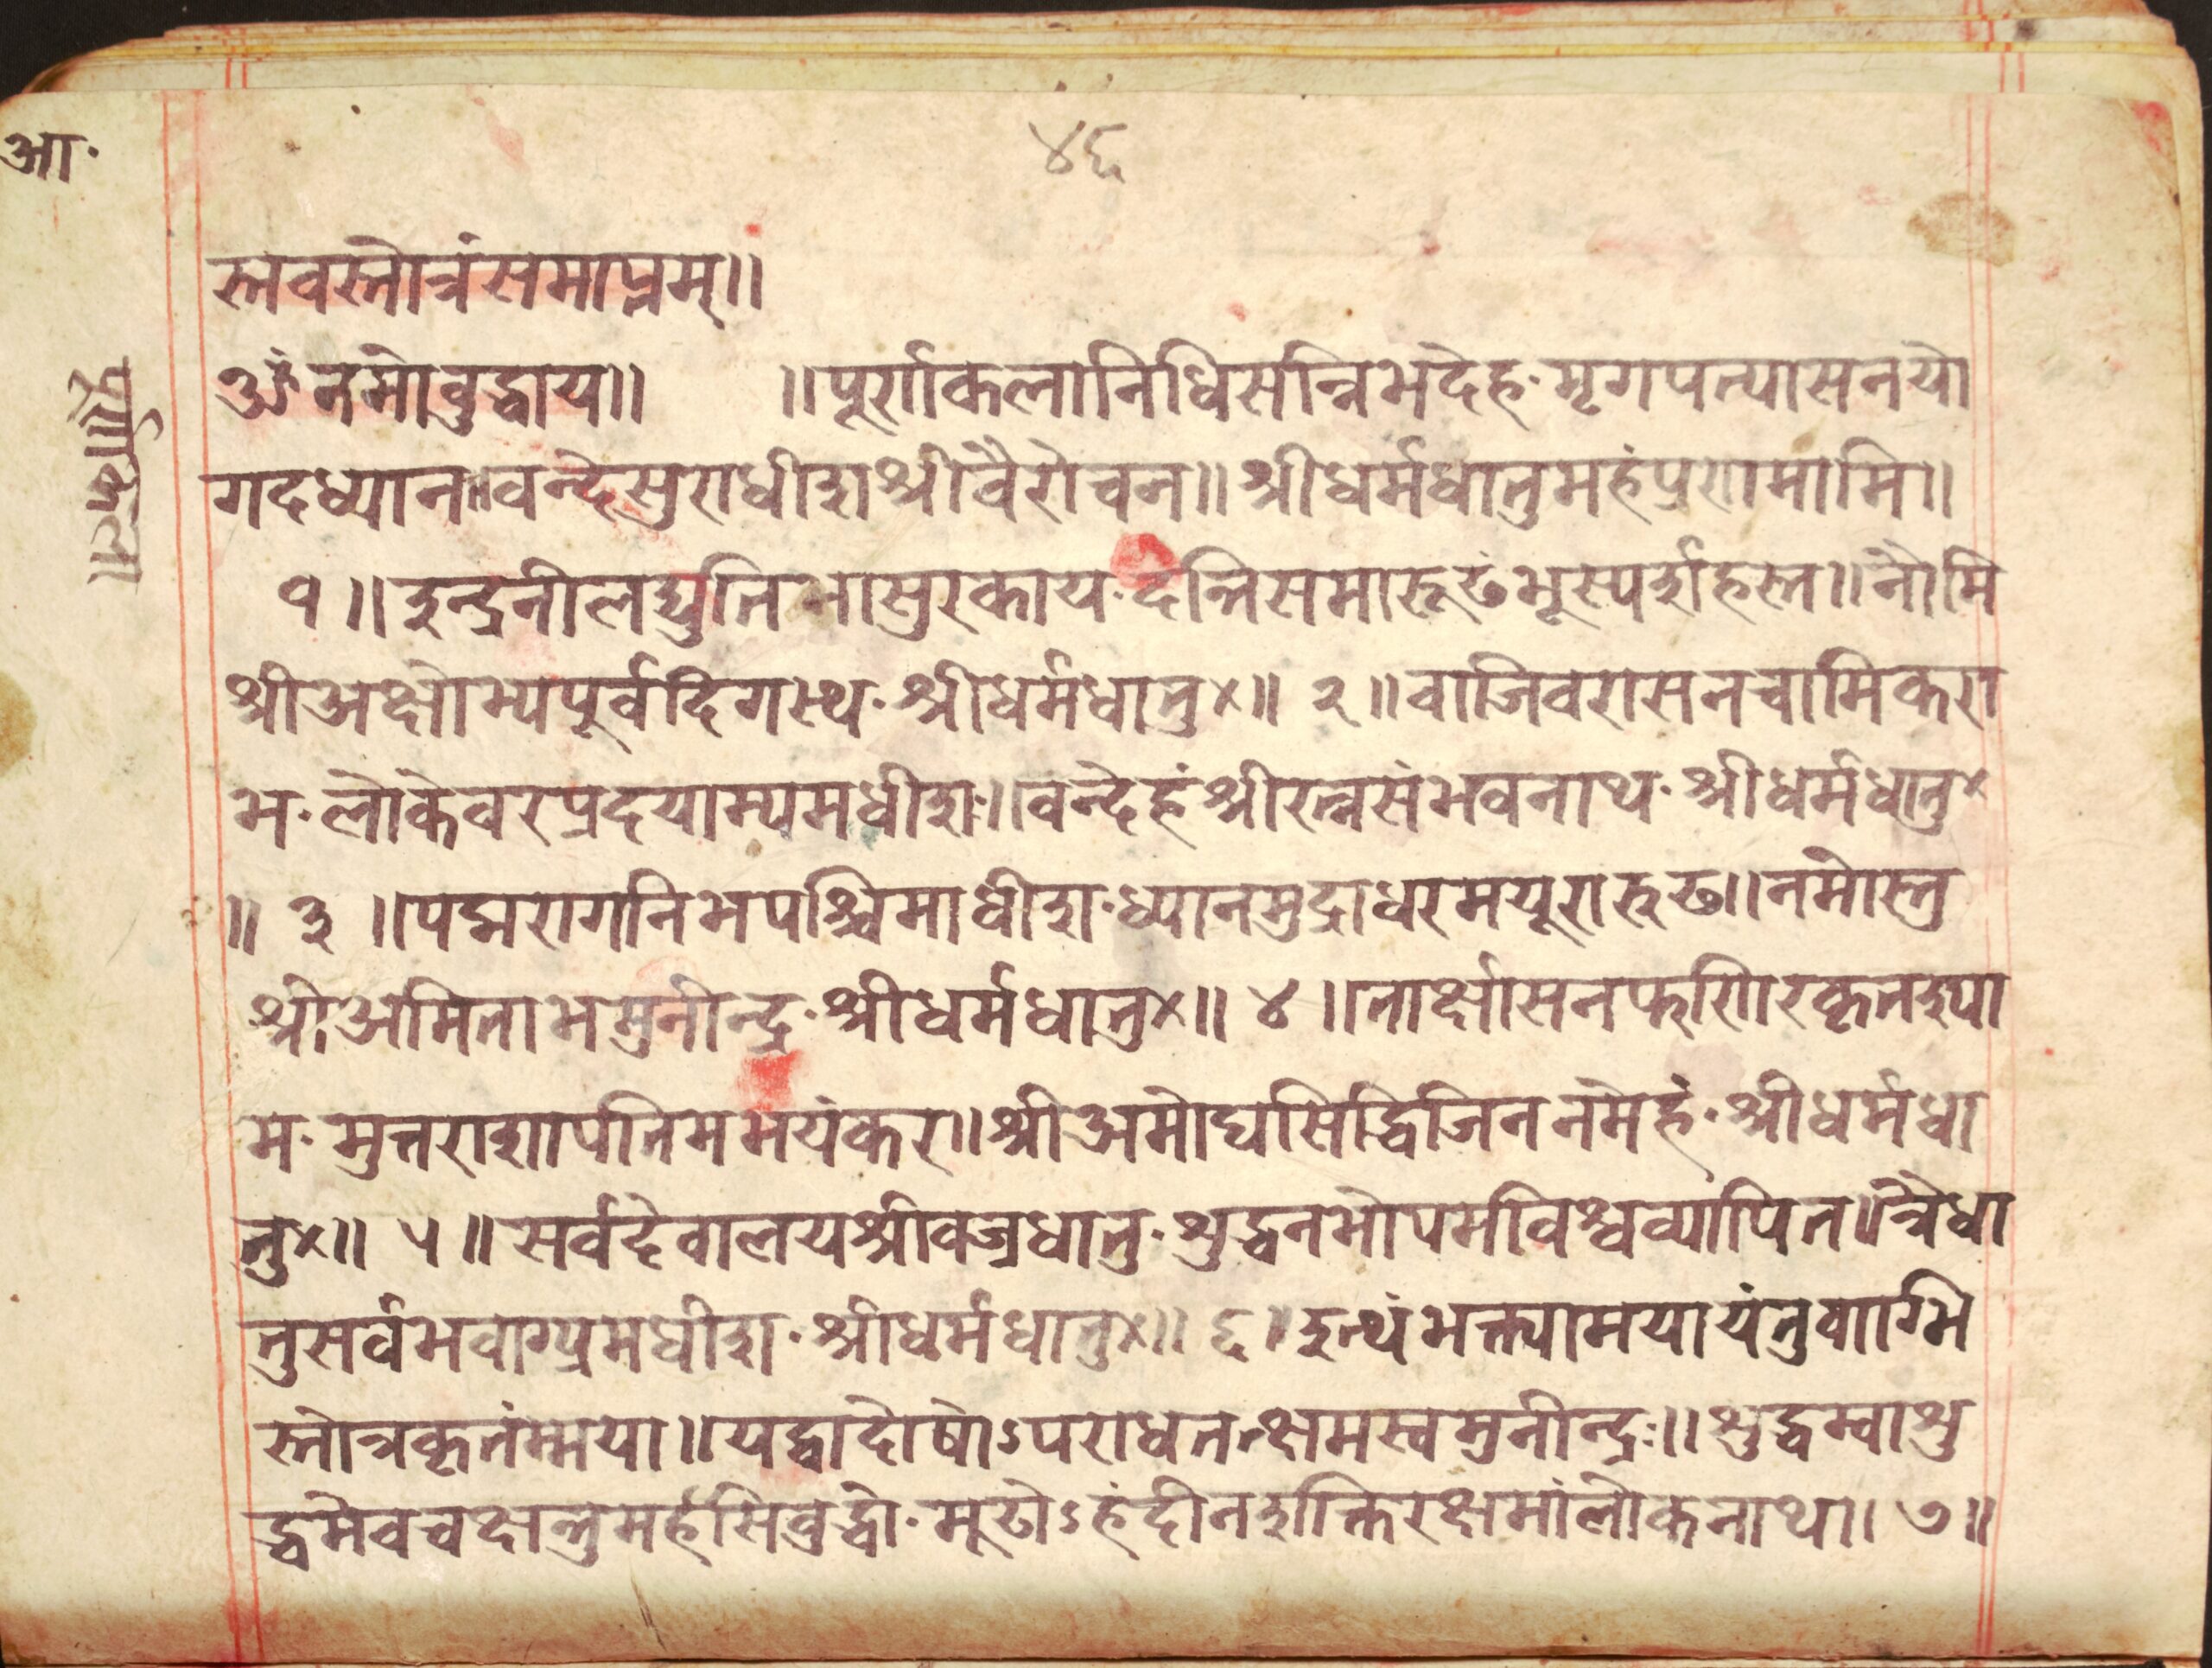 आ·
४६
स्तवस्तोत्रंसमाप्तम्॥
ॐनमोबुद्धाय॥ ॥पूर्णकलानिधिसन्निभदेह·मृगपत्यासनयो
गदध्यान॥वन्देसुराधीशश्रीवैरोचन॥श्रीधर्मधातुमहंप्रणमामि॥
१॥इन्द्रनीलद्युतिभासुरकाय·दन्तिसमारूढंभूस्पर्शहस्त॥नौमि
श्रीअक्षोभ्यपूर्वदिगस्थ·श्रीधर्मधातु×॥ २॥वाजिवरासनचामिकरा
भ·लोकेवरप्रदयाम्यमधीश॥वन्देहंश्रीरत्नसंभवनाथ·श्रीधर्मधातु×
॥ ३ ॥पद्मरागनिभपश्चिमाधीश·ध्यानमुद्राधरमयूरारुढ॥नमोस्तु
श्रीअमिताभमुनीन्द्र·श्रीधर्मधातु×॥ ४ ॥तार्क्षासनफणिरकृतश्या
म·मुत्तराशापतिमभयंकर॥श्रीअमोघसिद्धिजिननमेहं·श्रीधर्मधा
तु×॥ ५ ॥सर्वदेवालयश्रीवज्रधातु·शुद्धनभोपमविश्वव्यापिन॥त्रैधा
तुसर्वभवाग्प्रमधीश·श्रीधर्मधातु×॥ ६॥इत्थंभक्त्यामयायंतुवाग्भि
स्तोत्रकृतंम्मया॥यद्वादोषोऽपराधतत्क्षमस्वमुनीन्द्रः॥शुद्धम्वाशु
द्धमेवचक्षन्तुमर्हसिबुद्धो·मूढोऽहंदीनशक्तिरक्षमांलोकनाथ॥ ७॥
पूर्णकला